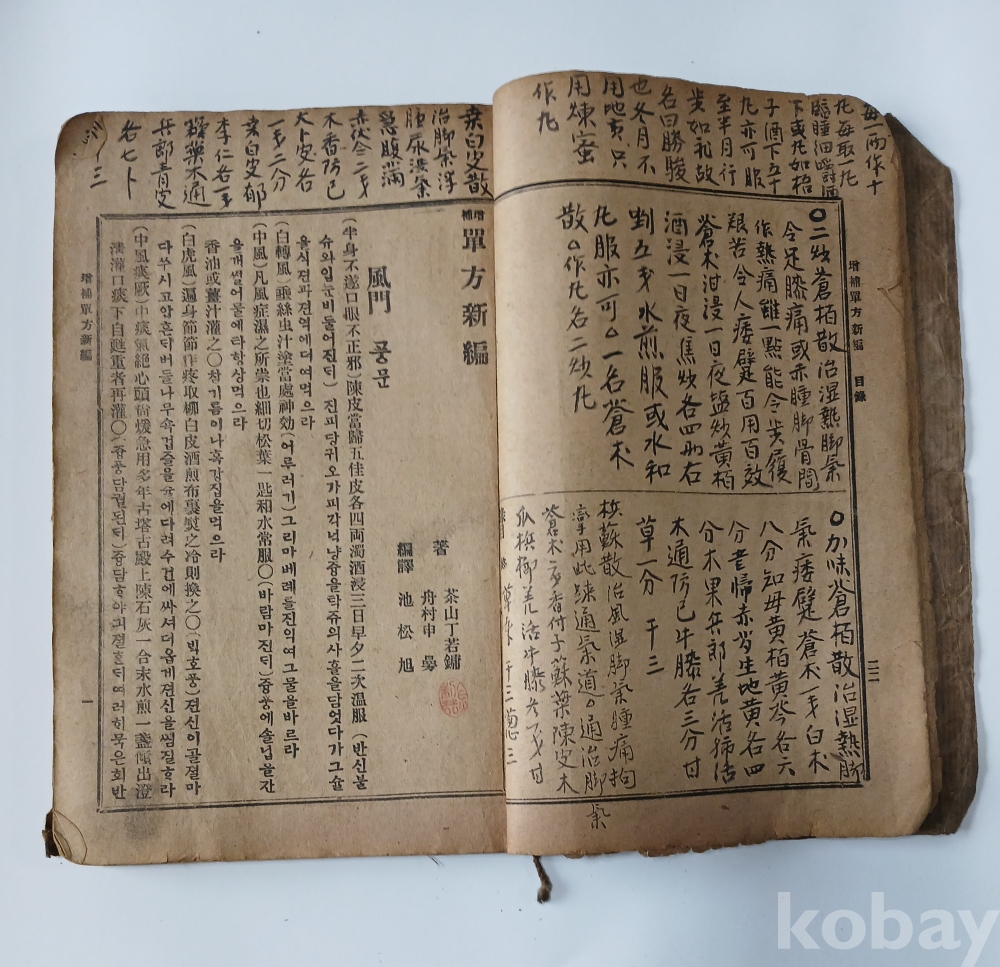 每一兩作十
丸每取一丸
臨睡細嚼酒
下或丸如梧
子酒下五十
丸亦可服
至半月行
步如礼故
名曰勝駿
也冬月不
用地黃只
用煉蜜
作丸
增補單方新編 目錄
○二炒蒼栢散治湿熱脚氣
令足膝痛或赤腫脚骨間
作熱痛雖一點能令步履
艱苦令人痿躄百用百效
蒼朮泔浸一日夜塩炒黃栢
酒浸一日夜焦炒各四戔右
剉五戔水煎服或水和
丸服亦可○一名蒼朮
散○作丸名二炒丸
○加味蒼栢散治湿熱脚
氣痿躄蒼朮一戔白朮
八分知母黃栢黃芩各六
分當歸赤芍生地黃各四
分木果兵郎羌活獨活
木通防己牛膝各三分甘
草一分 干三
檳蘇散治風湿脚氣腫痛拘
攣用此踈通氣道○通治脚氣
蒼朮二戔香付子蘇葉陳皮木
瓜檳榔羌活牛膝各一戔甘
草 干三葱三
桑白皮散
治脚氣浮
腫尿澁氣
急腹滿
赤茯令二戔
木香防己
大卜皮各
一戔二分
桑白皮郁
李仁各一戔
木通
兵郎青皮
各七卜
干三
增補 單方新編
茶山丁若鏞
著 舟村申曼
編譯 池松旭
風門 풍문
(半身不遂口眼不正邪)陳皮當歸五佳皮各四両濁酒浸三日早夕二次溫服(반신불
슈와입눈비둘어진ᄃᆡ)진피당귀오가피각넉냥즁을탁쥬의사흘을담엇다가그슐
을식젼과젼역에데여먹으라
(白轉風)垂絲虫汁塗當處神効(어루러기)그리마베레를진익여그물을바르라
(中風)凡風症濕之所祟也細切松葉一匙和水常服○바람마진ᄃᆡ)즁풍에솔닙을잔
을개썰어물에타항상먹으라
香油或薑汁灌之○참기름이나혹강집을먹으라
(白虎風)遍身節節作疼取柳白皮酒煎布裹熨之冷則換之○(박호풍)젼신이골졀마
다쑤시고암흔ᄃᆡ버들나무속겁즐을슐에다려수건에싸셔더옵게젼신을씸질ᄒᆞ라
(中風痰厥)中痰氣絕心頭尙煖急用多年古塔古殿上陳石灰一合末水煎一盞傾出澄
淸灌口痰下自甦重者再灌○(즁풍담궐된ᄃᆡ)즁담ᄒᆞ야긔졀ᄒᆞᆫᄃᆡ여러ᄒᆡ묵은회반
增補單方新編
一
kobay